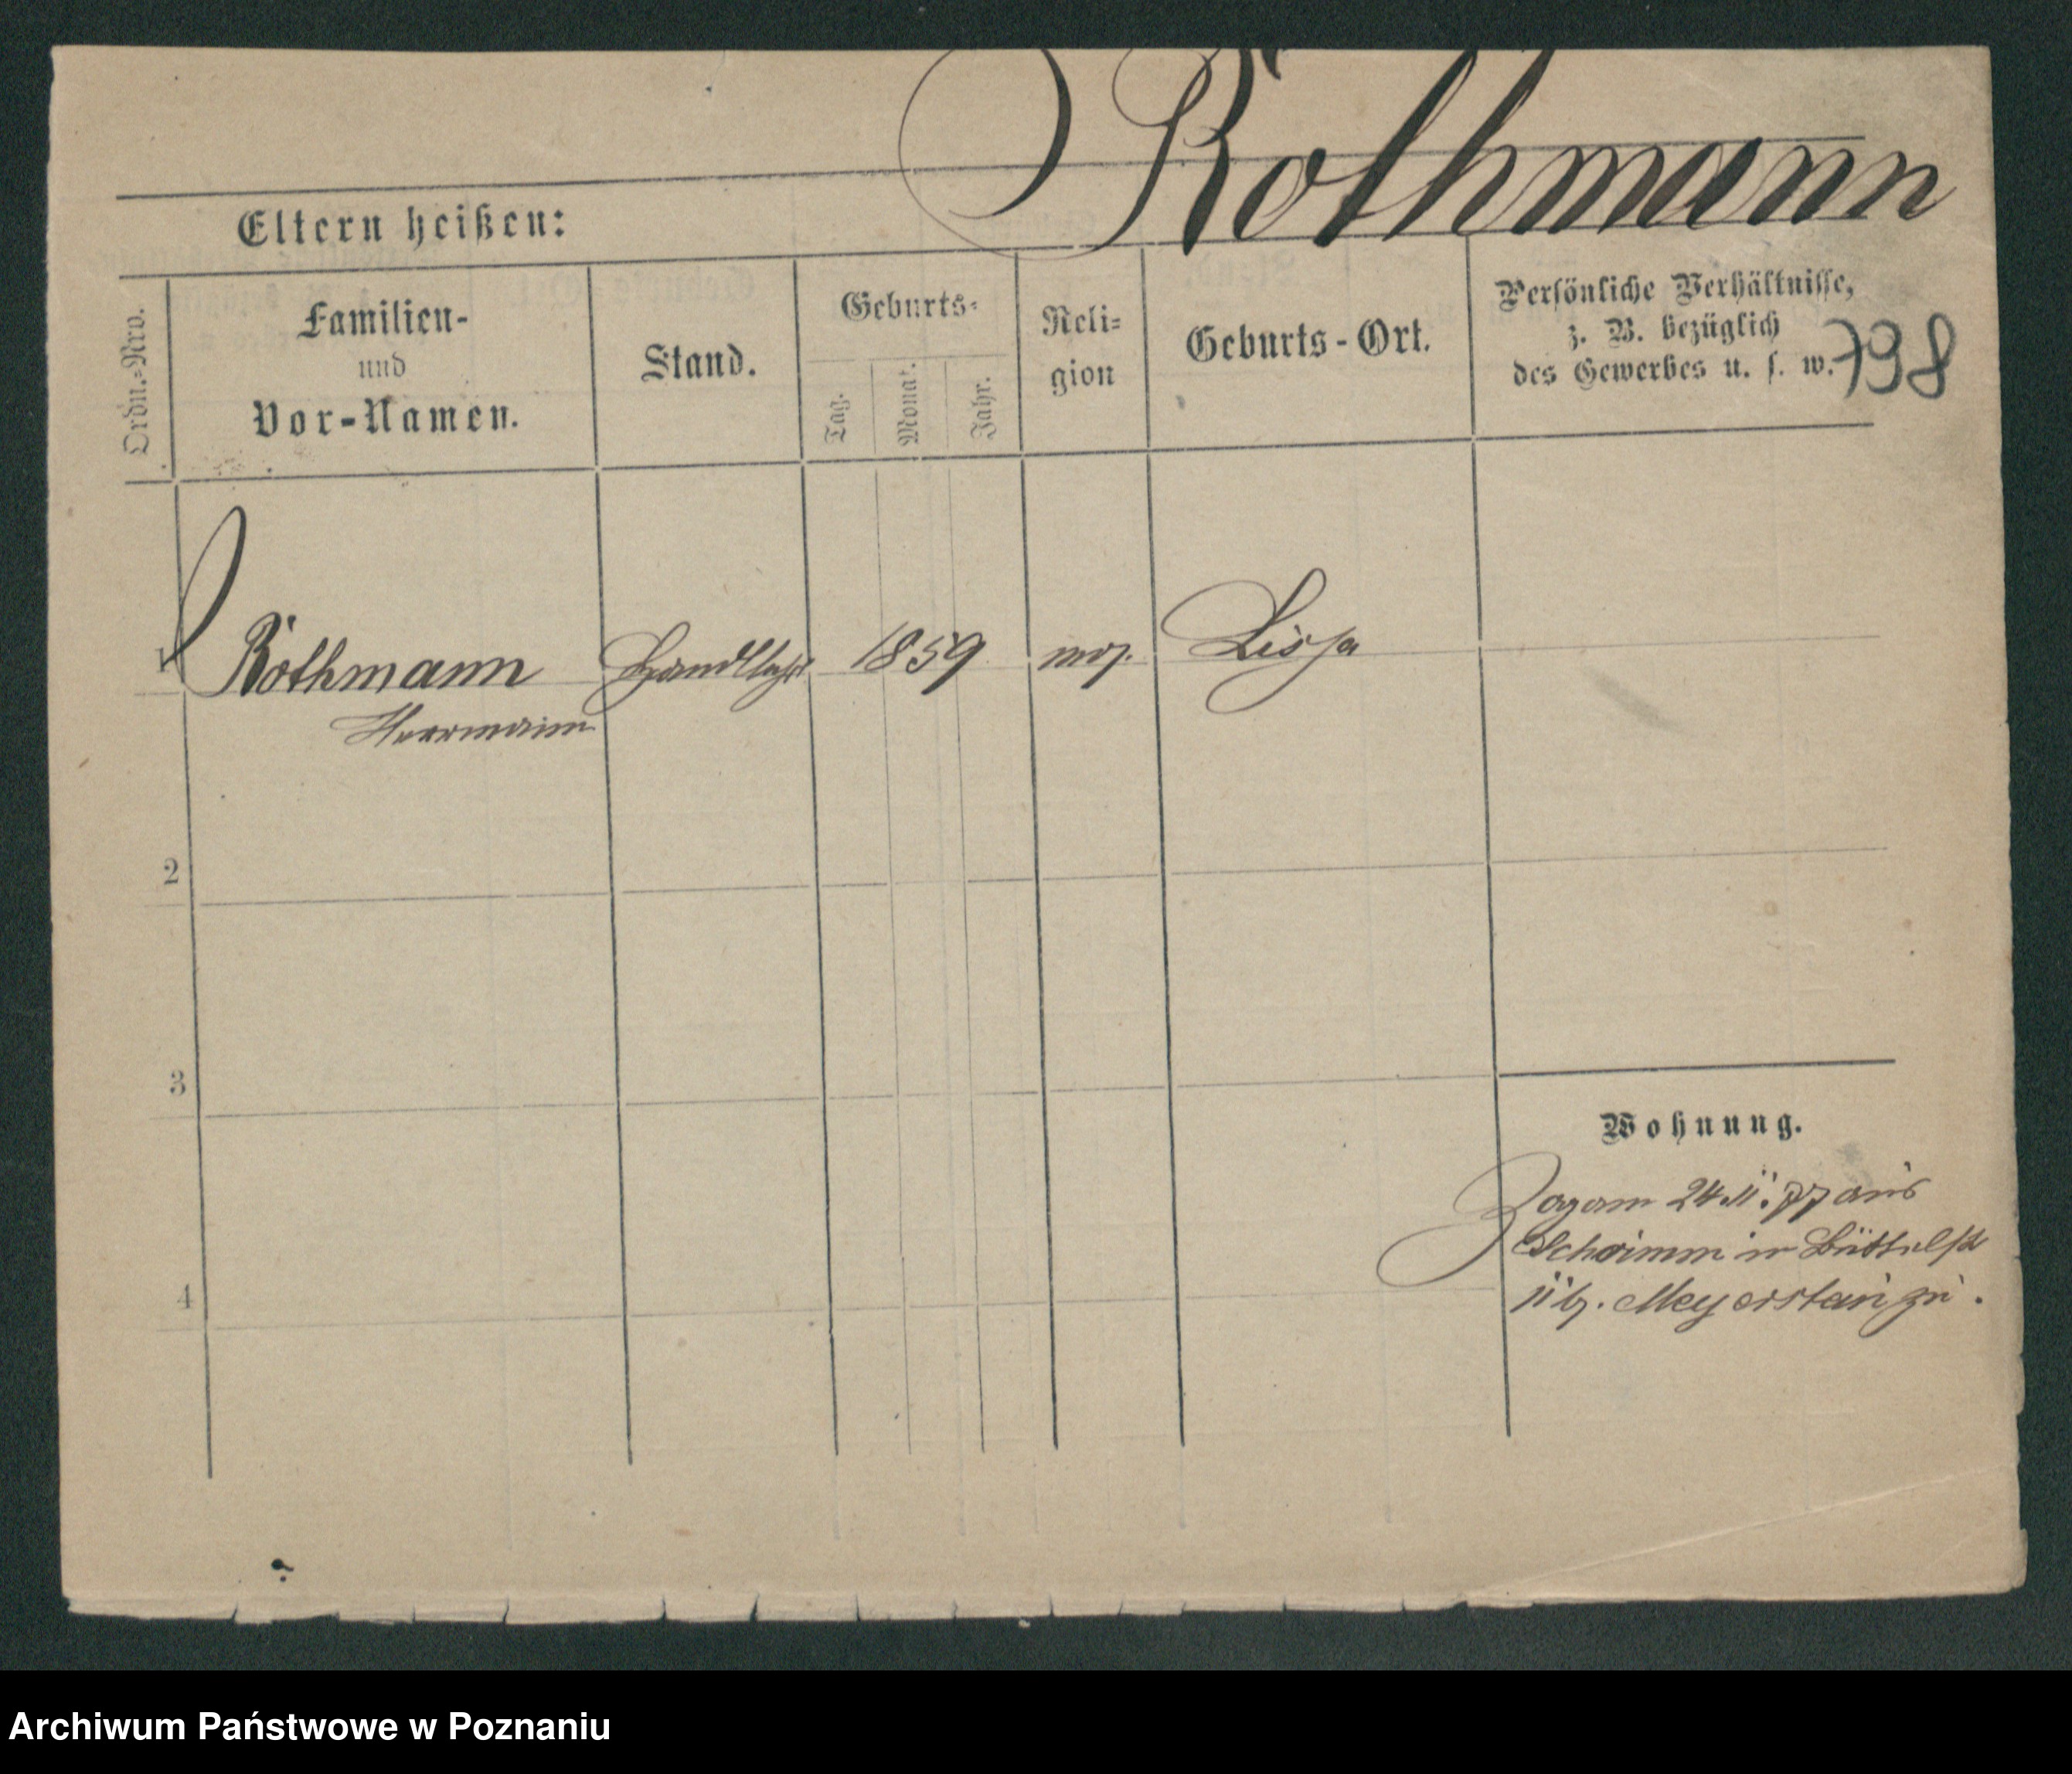 Rothmann
Eltern heißen:
Ordn.-Nro.
Familien-
und
Vor-Namen.
Stand.
Geburts-
Tag.
Monat.
Jahr.
Reli-
gion
Geburts-Ort.
Persönliche Verhältnisse,
z. B. bezüglich
des Gewerbes u. s. w.
798
1 Rothmann 1859 mos. Lissa
Herrmann
2
3
Wohnung.
Zogam 24.11.77 aus
Schrimm
4
Archiwum Państwowe w Poznaniu